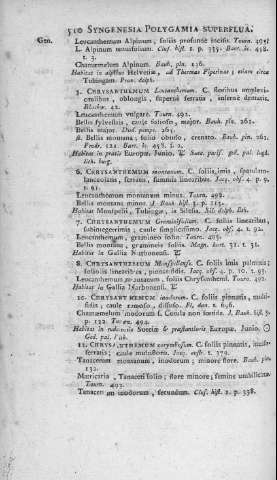 510 SYNGENESIA POLYGAMIA SUPERFLUA.
Gen. Leucanthemum Alpinum, foliis profunde incisis. Tourn. 493.
L. Alpinum tenuifolium. Clus. hist. 1. p. 335. Barr. ic. 458.
f. 3.
Chamæmelum Alpinum. Bauh. pin. 136.
Habitat in alpibus Helvetiæ, ad Thermas Piperinas; etiam circa
Tubingam.
5. CHRYSANTHEMUM Leucanthemum. C. floribus amplexi-
caulibus, oblongis, superne serratis, inferne dentatis.
Blackw. 42.
Leucanthemum vulgare. Tourn. 492.
Bellis sylvestris, caule folioso, major. Bauh. pin. 261.
Bellis major. Dod. pempt. 265.
β. Bellis montana; folio obtuso, crenato. Bauh. pin. 261.
Prodr. 121. Barr. ic. 458. f. 2.
Habitat in pratis Europæ. Junio. ♃
6. CHRYSANTHEMUM montanum. C. foliis imis, spatulato-
lanceolatis, serratis, summis linearibus. Jacq. obs. 4. p. 9.
t. 91.
Leucanthemum montanum minus. Tourn. 492.
Bellis montana minor. J. Bauh. hist. 3. p. 115.
Habitat Monspelii, Tubingæ, in Silesia.
7. CHRYSANTHEMUM Graminifolium. C. foliis linearibus,
subintegerrimis; caule simplicissimo. Jacq. obs. 4. t. 92.
Leucanthemum, gramineo folio. Tourn. 493.
Bellis montana, gramineis foliis. Magn. hort. 31. t. 31.
Habitat in Gallia Narbonensi. ♃
8. CHRYSANTHEMUM Monspeliense. C. foliis imis palmatis;
foliolis linearibus, pinnatifidis. Jacq. obs. 4. p. 10. t. 93.
Leucanthemum montanum, foliis Chrysanthemi. Tourn. 492.
Habitat in Gallia Narbonensi. ♃
10. CHRYSANTHEMUM inodorum. C. foliis pinnatis, multi-
fidis; caule ramoso, diffuso. Fl. dan. t. 696.
Chamæmelum inodorum s. Cotula non foetida. J. Bauh. hist. 3.
p. 122. Tourn. 492.
Habitat in ruderatis Sueciæ & præstantioris Europæ. Junio. ☉
11. CHRYSANTHEMUM corymbosum. C. foliis pinnatis, inciso-
serratis; caule multifloro. Jacq. austr. t. 379.
Tanacetum montanum, inodorum; minore flore. Bauh. pin.
132.
Matricaria, Tanaceti folio; flore minore; semine umbilicato.
Tourn. 493.
Tanacetum inodorum, secundum. Clus. hist. 1. p. 338.